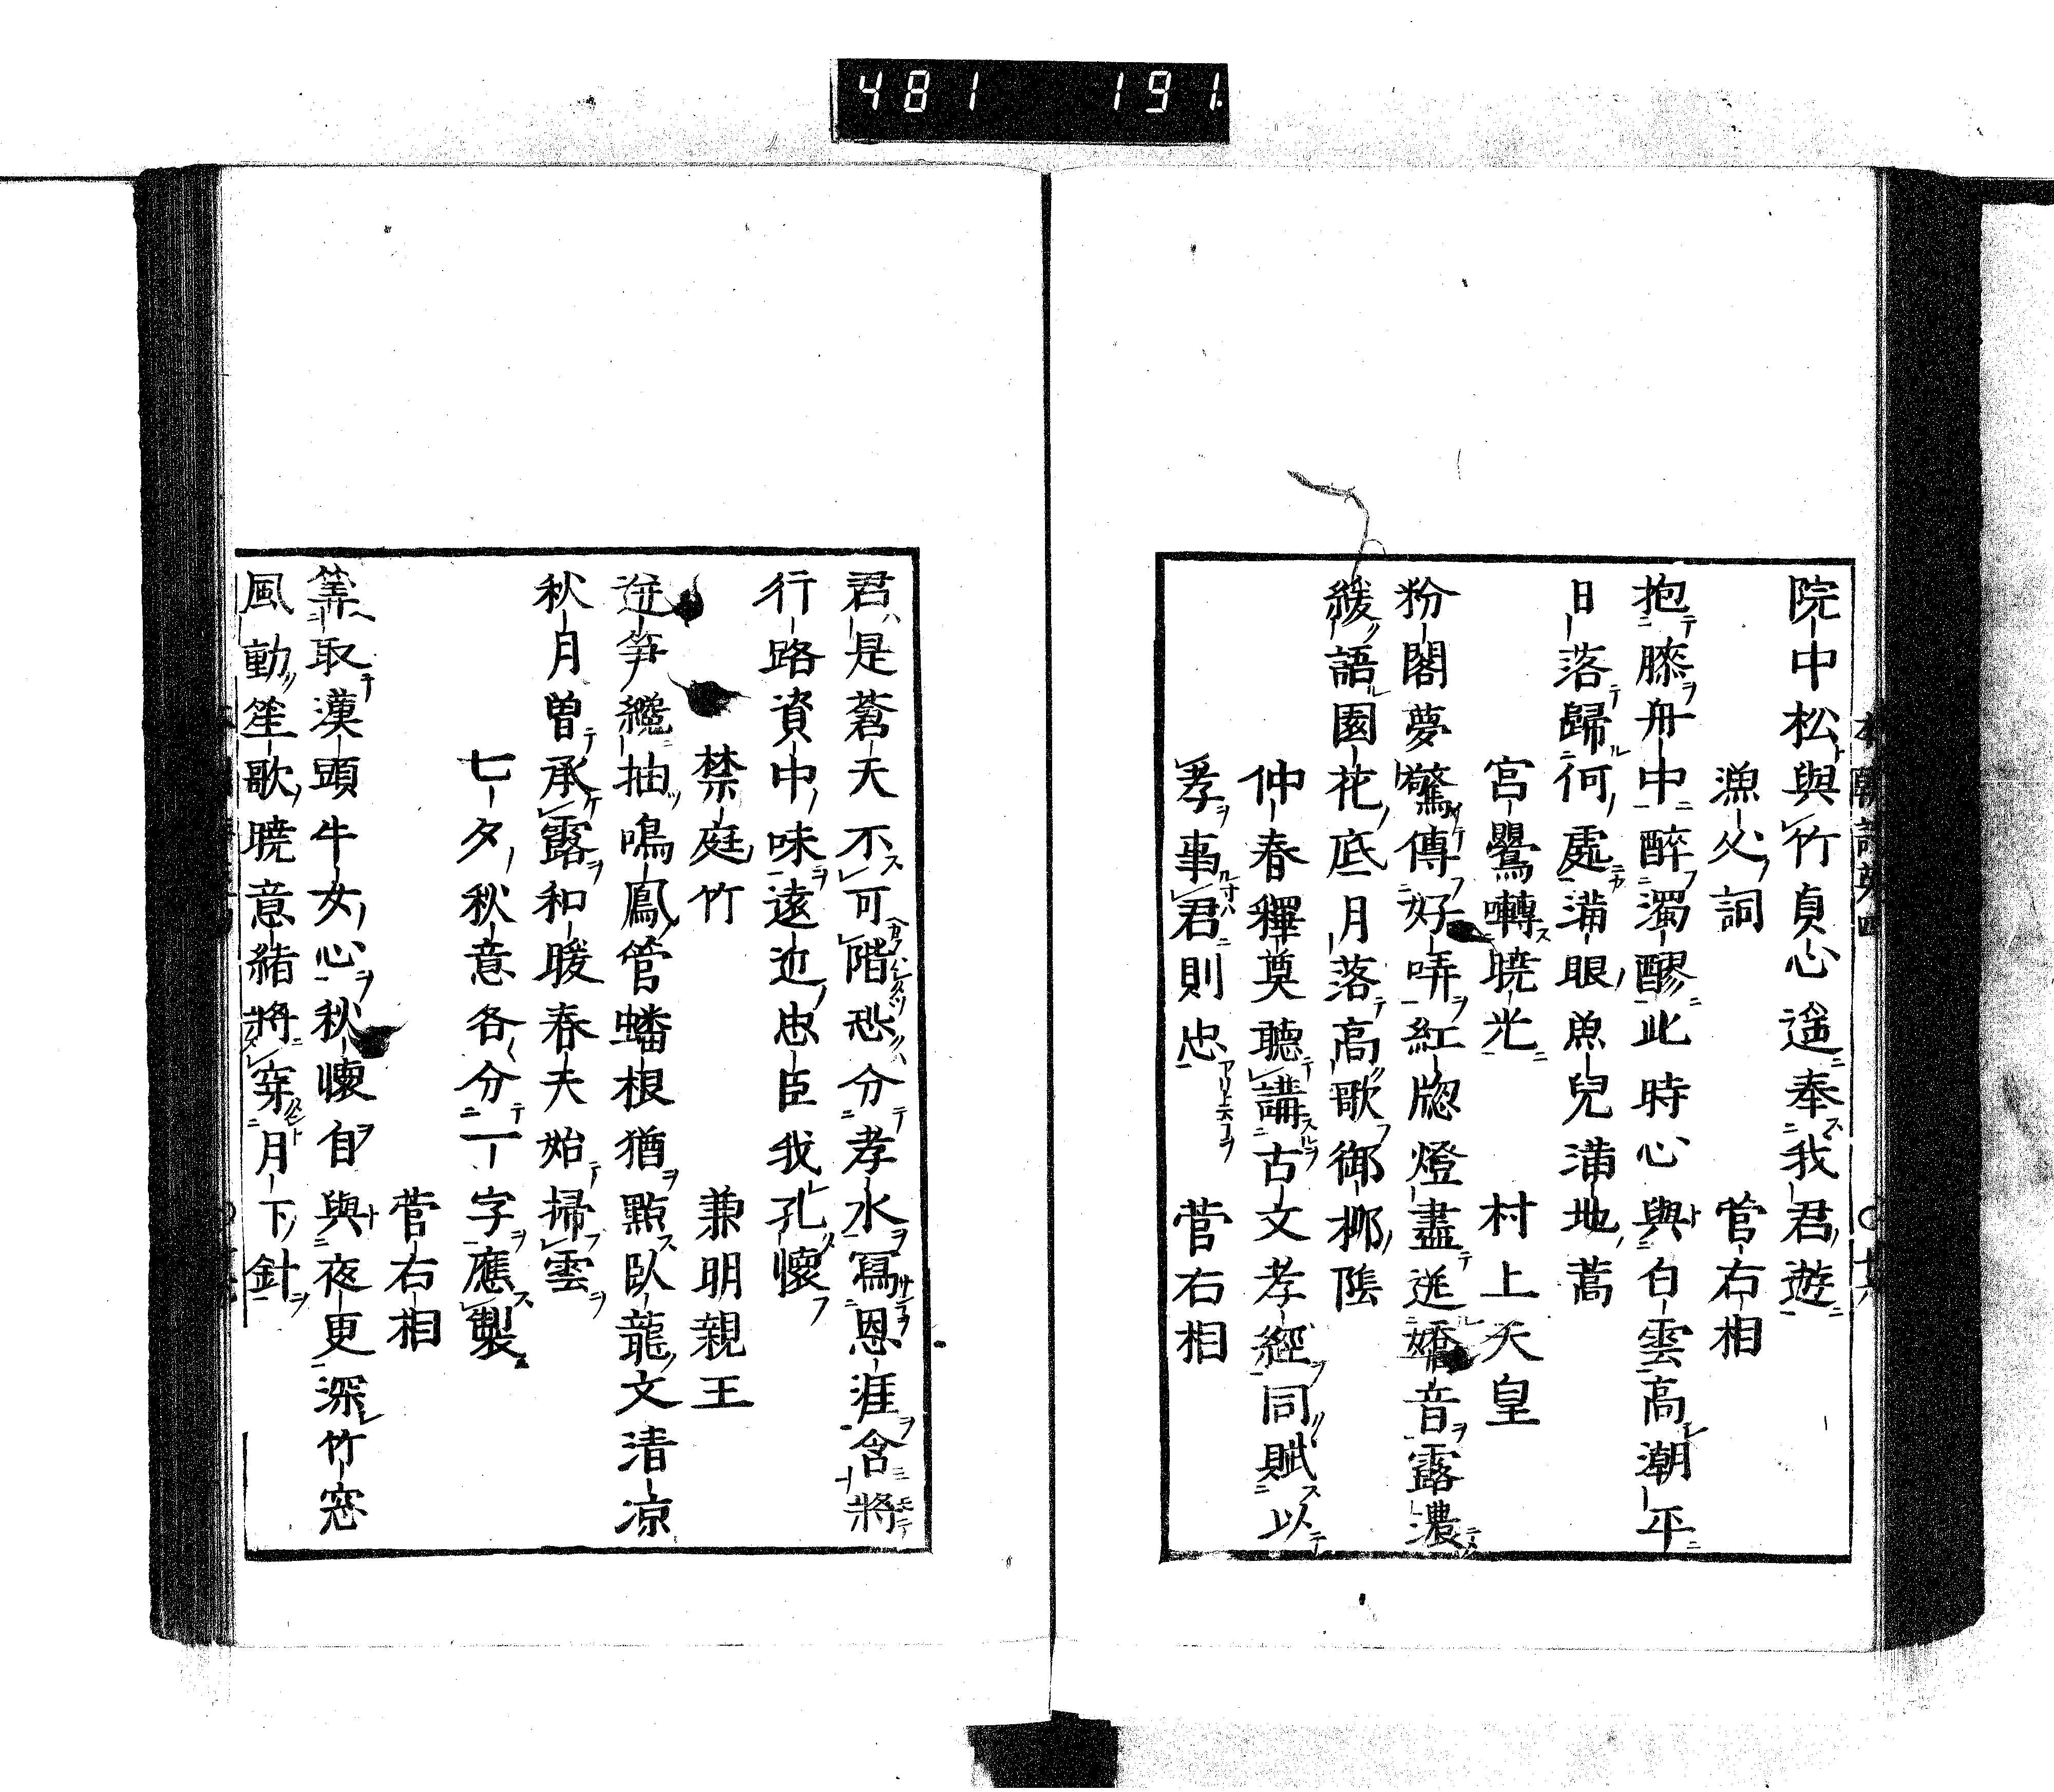 481 191
院中松與竹貞心遥奉我君遊
漁父詞 菅右相
抱膝舟中醉濁醪此時心與白雲高潮平
日落歸何處滿眼魚兒滿地蒿
宮鸎囀曉光 村上天皇
粉閣夢驚傳好哢紅牎燈盡送嬌音露濃
緩語園花底月落高歌御柳陰
仲春釋奠聽講古文孝經同賦以
孝事君則忠 菅右相
君是蒼天不可階恐分孝水寫恩涯含將
行路資中味遠迯忠臣我孔懷
禁庭竹 兼明親王
迸笋纔抽鳴鳳管蟠根猶點臥龍文清凉
秋月曽承露和暖春天始掃雲
七夕秋意各分一字應製
菅右相
筭取漢頭牛女心秋懷自與夜更深竹窓
風動笙歌曉意緒將穿月下針